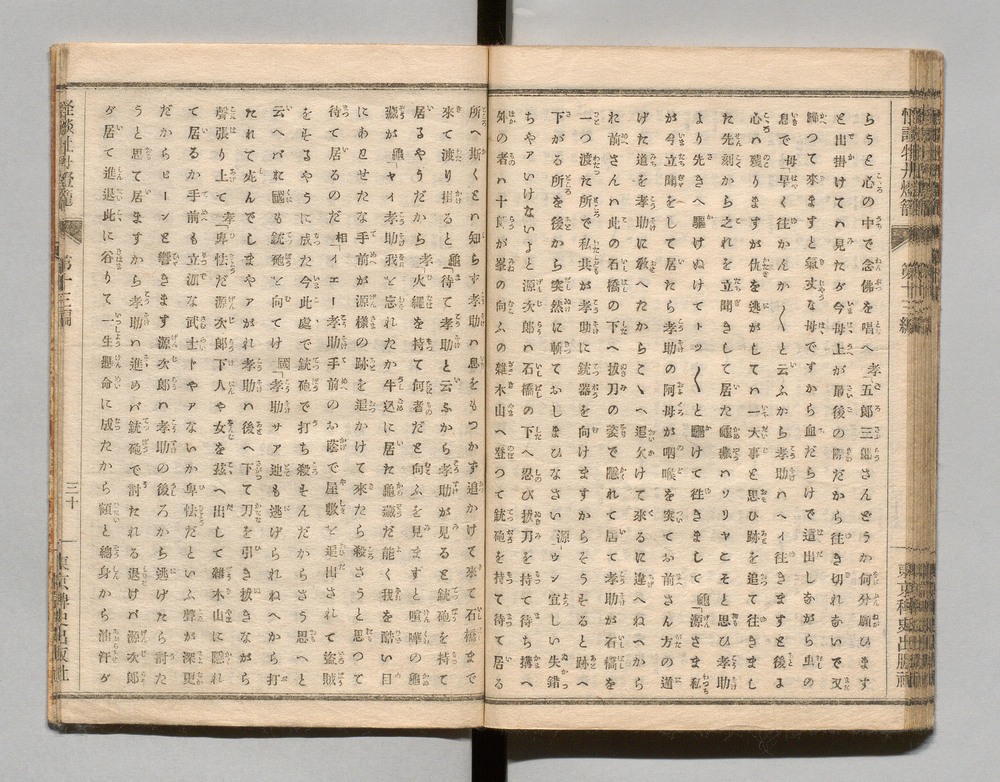 らうと心の中で念佛を唱へ 孝「五郎三郎さんどうか何分願ひます
と出掛けてハ見たが今母上が最後の際だから往き切れないで又
歸つて來ますと氣丈な母ですから血だらけで這出しながら虫の
息で 母「早く往かんか〱と云ふから孝助ハヘイ往きますと後に
心ハ殘りますが仇を逃がしてハ一大事と思ひ跡を追て往きまし
た先刻から之れを立聞きして居た龜藏ハソリヤこそと思ひ孝助
より先きへ驅けぬけてトッ〱と驅けて往きまして 龜「源さま私
が今立聞をして居たら孝助の阿母が咽喉を突いてお前さん方の道
げた道を孝助に敎へたからこゝへ追欠けて來るに違へねへから
お前さんハ此の石橋の下へ拔刀の姿で隱れて居て孝助が石橋を
一つ渡た所で私共が孝助に銃器を向けますからそうすると跡へ
下がる所を後から突然に斬ておしまひなさい 源「ウン宜しい失錯
ちやアいけないよと源次郎ハ石橋の下へ忍び拔刀を持て待ち構へ
外の者ハ十郎が峯の向ふの雜木山へ登つて銃砲を持て待て居る
所へ斯くとハ知らず孝助ハ息をもつかず追掛けて來て石橋まで
來て渡り掛ると 龜「待て孝助と云ふから孝助が見ると銃砲を持て
居るやうだから 孝「火繩を持て何者だと向ふを見ますと喧嘩の龜
藏が 龜「ヤイ孝助我を忘れたか牛込に居た龜藏だ能く我を酷い目
にあはせたな手前が源樣の跡を追かけて來たら殺さうと思つて
待て居るのだ 相「イエー孝助手前のお蔭で屋敷を追出されて盜賊
をするやうに成た今此處で銃砲で打ち殺すんだからさう思へと
云へバお國も銃砲を向けて 國「孝助サア迚も逃げられねへから打
たれて死んでしまやアがれ孝助ハ後へ下つて刀を引き拔きながら
聲張り上て 孝「卑怯だ源次郎下人や女を玆へ出して雜木山に隱れ
て居るか手前も立派な武士トヤアないか卑怯だといふ聲が深夜
だからピーンと響きます源次郎ハ孝助の後ろから逃げたら討た
うと思て居ますから孝助ハ進めバ銃砲で討たれる退けバ源次郎
が居て進退此に谷りて一生懸命に成たから額と總身から油汗が
怪談牡丹燈籠
第十三編
三十
東京稗史出版社
怪談牡丹燈籠
第十三編
東京稗史出版社